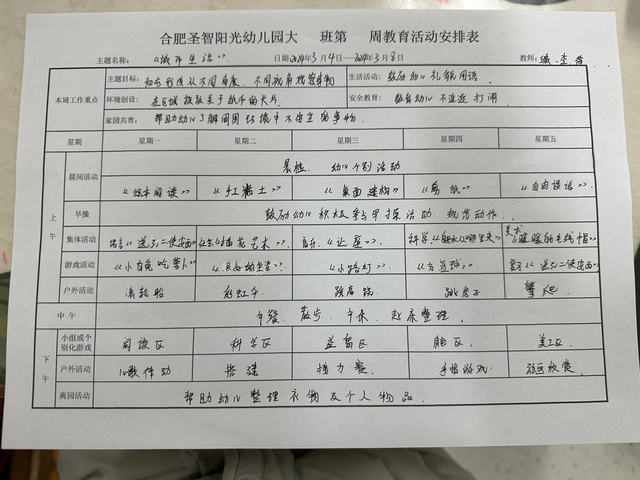 合肥圣智阳光幼儿园大 班第 周教育活动安排表
主题名称：《城市生活》 日期2024年3月4日—2024年3月8日 教师：
本周工作重点
主题目标：初步形成从不同角度、不同视角观察事物
生活活动：鼓励幼儿礼貌用语
环境创设：在区域投放关于城市的卡片
安全教育：教育幼儿不追逐打闹
家园共育：帮助幼儿了解周围环境中不安全的事物
星期 星期一 星期二 星期三 星期四 星期五
上午
晨间活动 晨检、幼儿个别活动
《绘本阅读》 《红黏土》 《桌面建构》 《剪纸》 《自由谈话》
早操 鼓励幼儿积极参与早操活动，规范动作。
集体活动 语言《送不二使安面》 《插花艺术》 音乐《让座》 科学 美术《暖暖的毛线帽》
游戏活动 《小白兔吃萝卜》 《小路灯》
户外活动 滚轮胎 彩虹伞 跳房子 攀爬
中午 午餐、散步、午休、起床整理。
下午
小组或个别化游戏 阅读区 科学区 益智区 美工区
户外活动 儿歌律动 搭建 接力赛 手指游戏
离园活动 帮助幼儿整理衣物及个人物品。